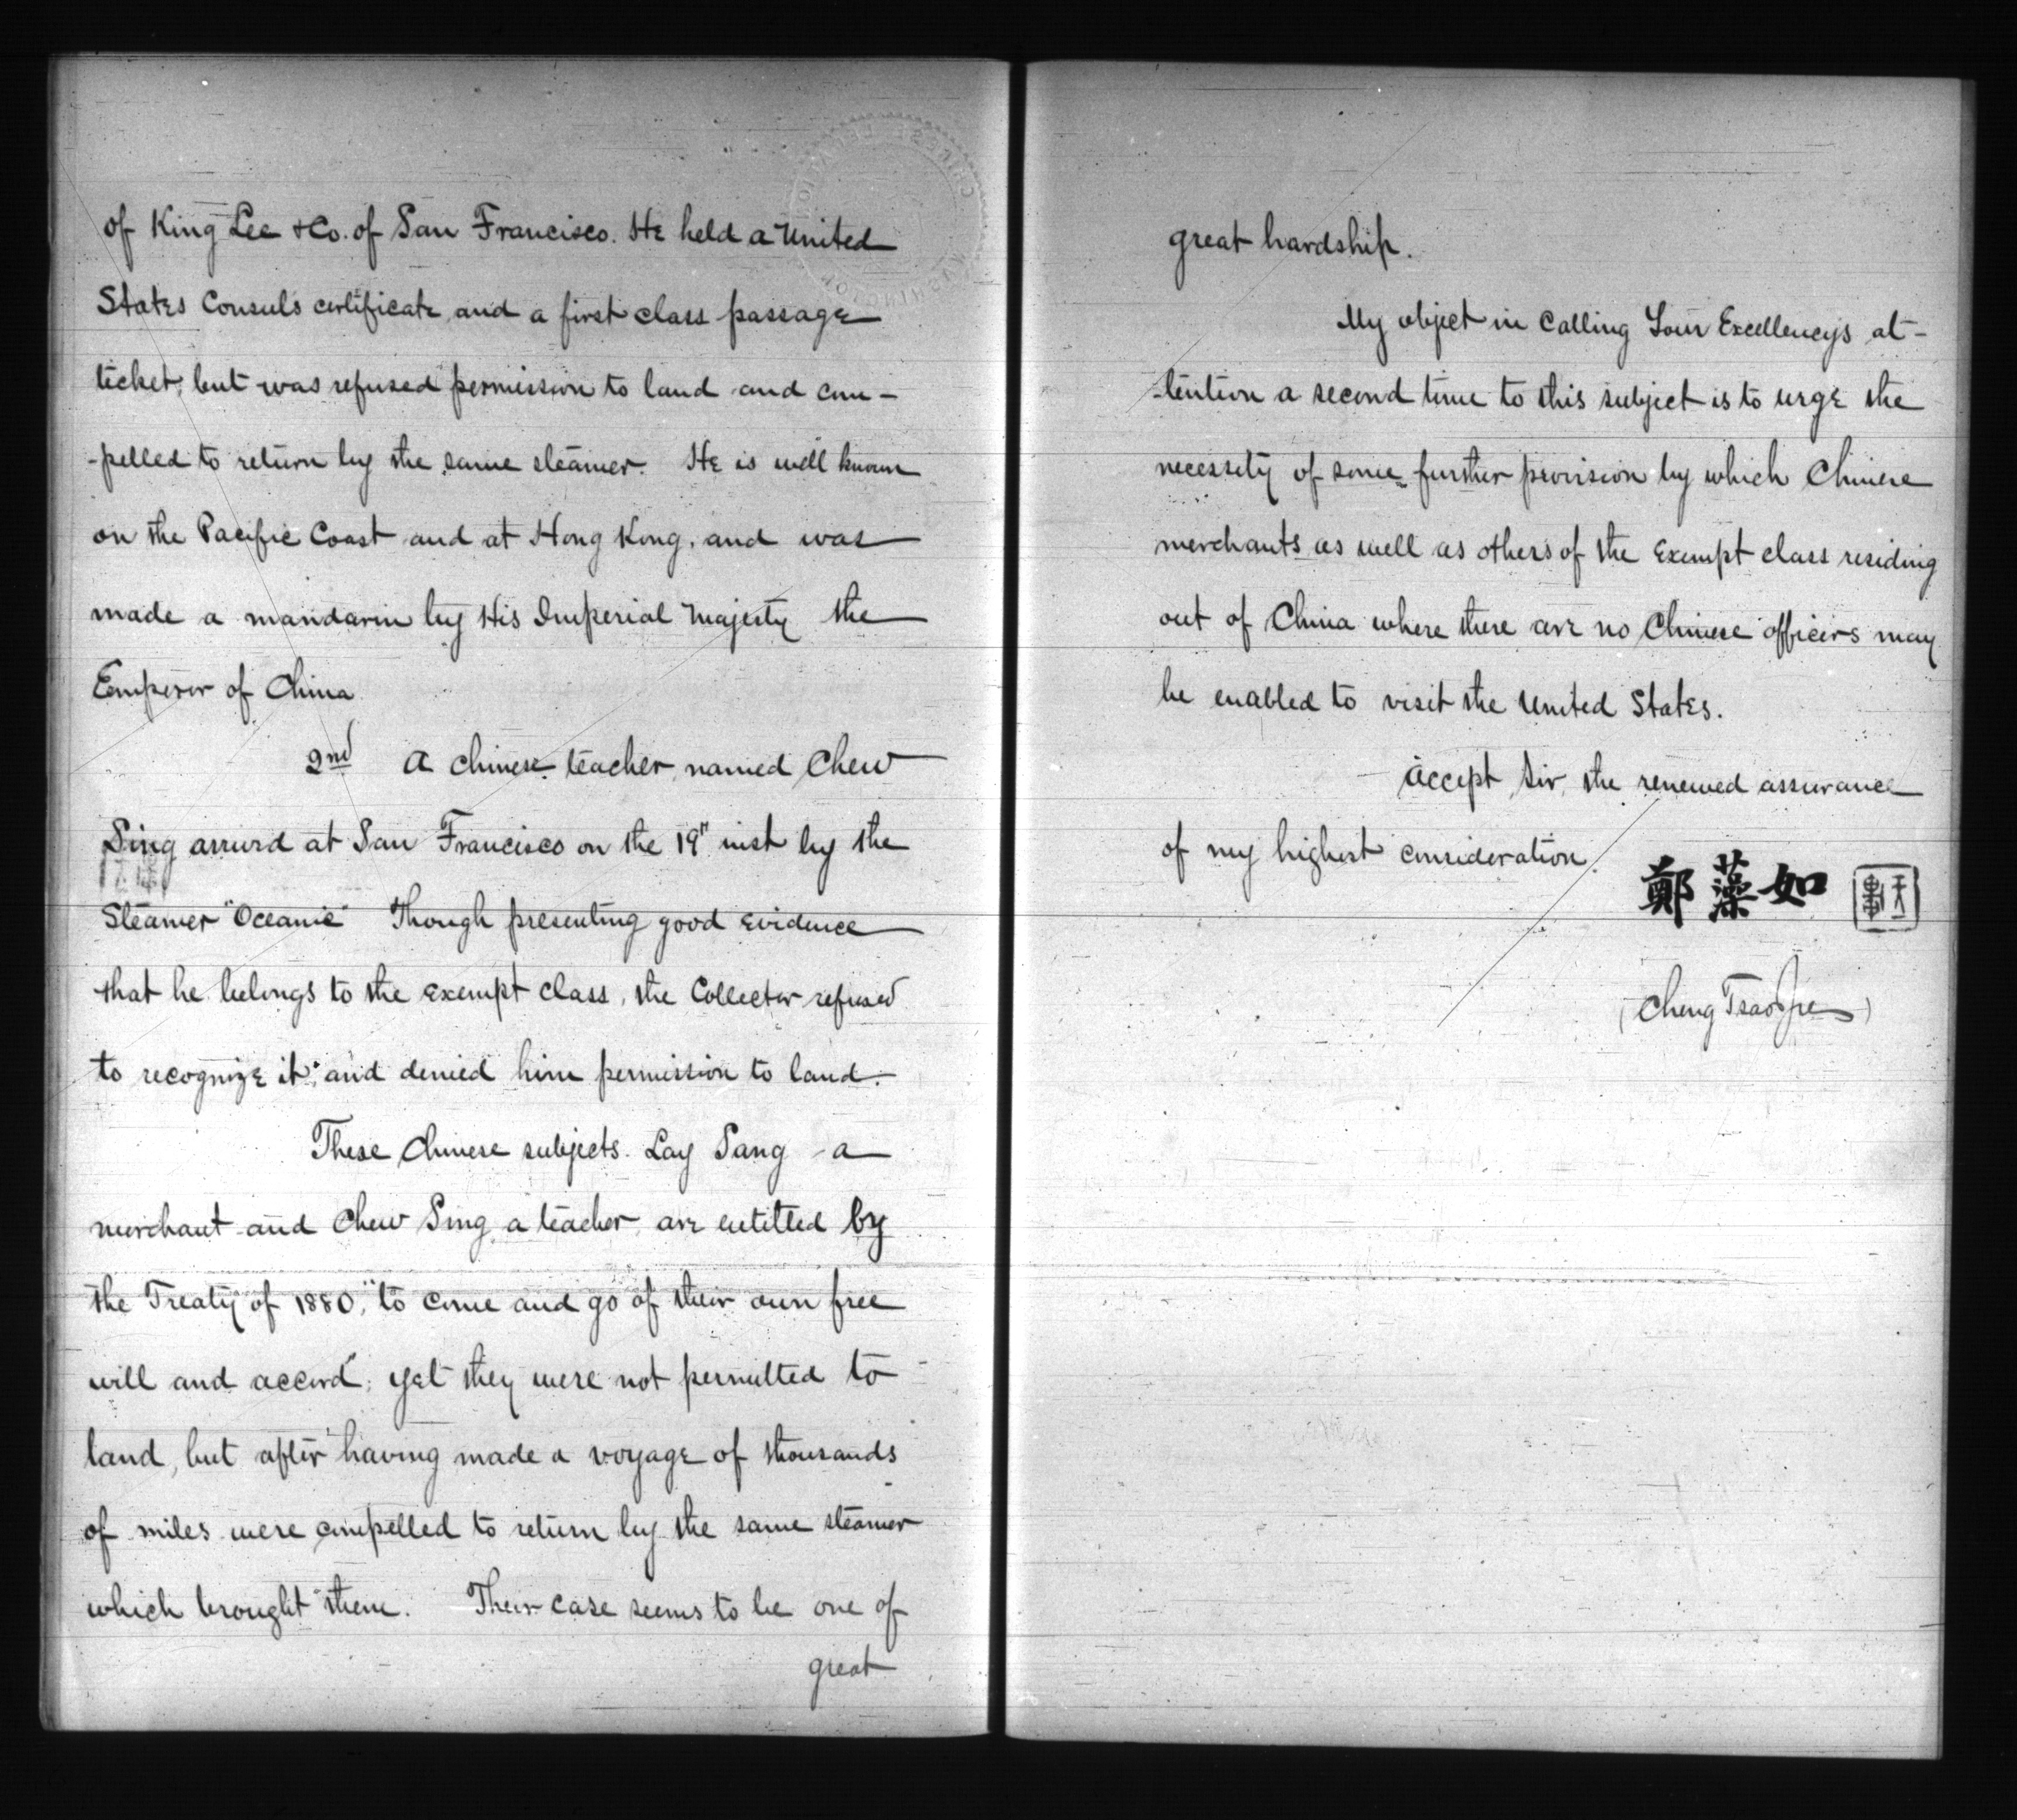 of King Lee & Co. of San Francisco. He held a United
States Consuls certificate and a first class passage
ticket, but was refused permission to land and com-
-pelled to return by the same steamer. He is well known
on the Pacific Coast and at Hong Kong, and was
made a mandarin by His Imperial Majesty the
Emperor of China
2nd A Chinese teacher, named Chew
Sing arrived at San Francisco on the 19" inst by the
Steamer "Oceanic" Though presenting good evidence
that he belongs to the exempt class, the Collector refused
to recognize it, and denied him permission to land.
These Chinese subjects. Lay Sang a
merchant and Chew Sing a teacher are entitled by
the Treaty of 1880, "to come and go of their own free
will and accord"; yet they were not permitted to
land, but after having made a voyage of thousands
of miles were compelled to return by the same steamer
which brought them. Their case seems to be one of
great
great hardship.
My object in calling Your Excellency's at-
-tention a second time to this subject is to urge the
necessity of some further provision by which Chinese
merchants as well as others of the exempt class residing
out of China where there are no Chinese officers may
be enabled to visit the United States.
Accept, Sir, the renewed assurance
of my highest consideration.
鄭藻如
(Cheng Tsao Ju)